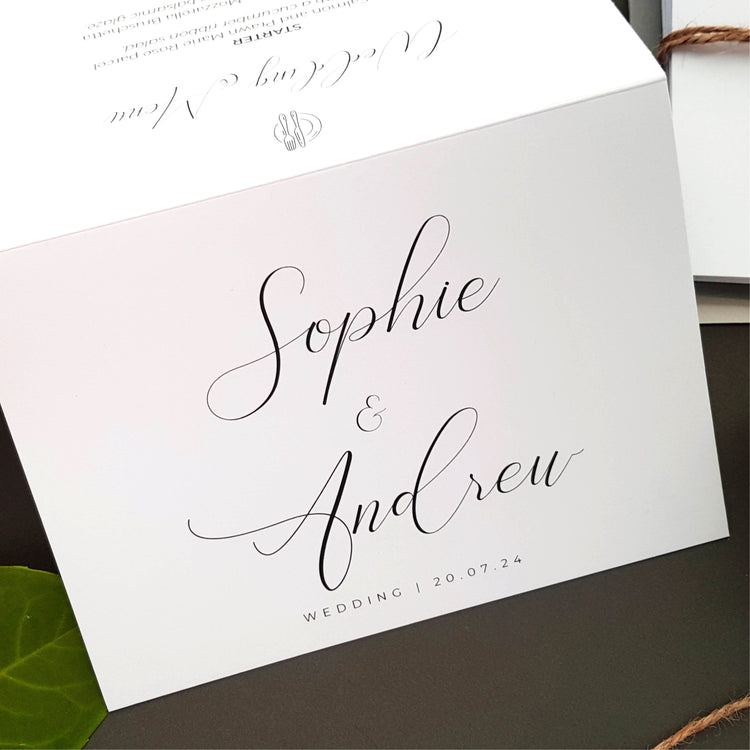 Sophie
&
Andrew
WEDDING | 20.07.24
Wedding Menu
STARTER
Salmon and Prawn Marie Rose parcel
a cucumber ribbon salad.
Mozzarella Bruschetta
balsamic glaze